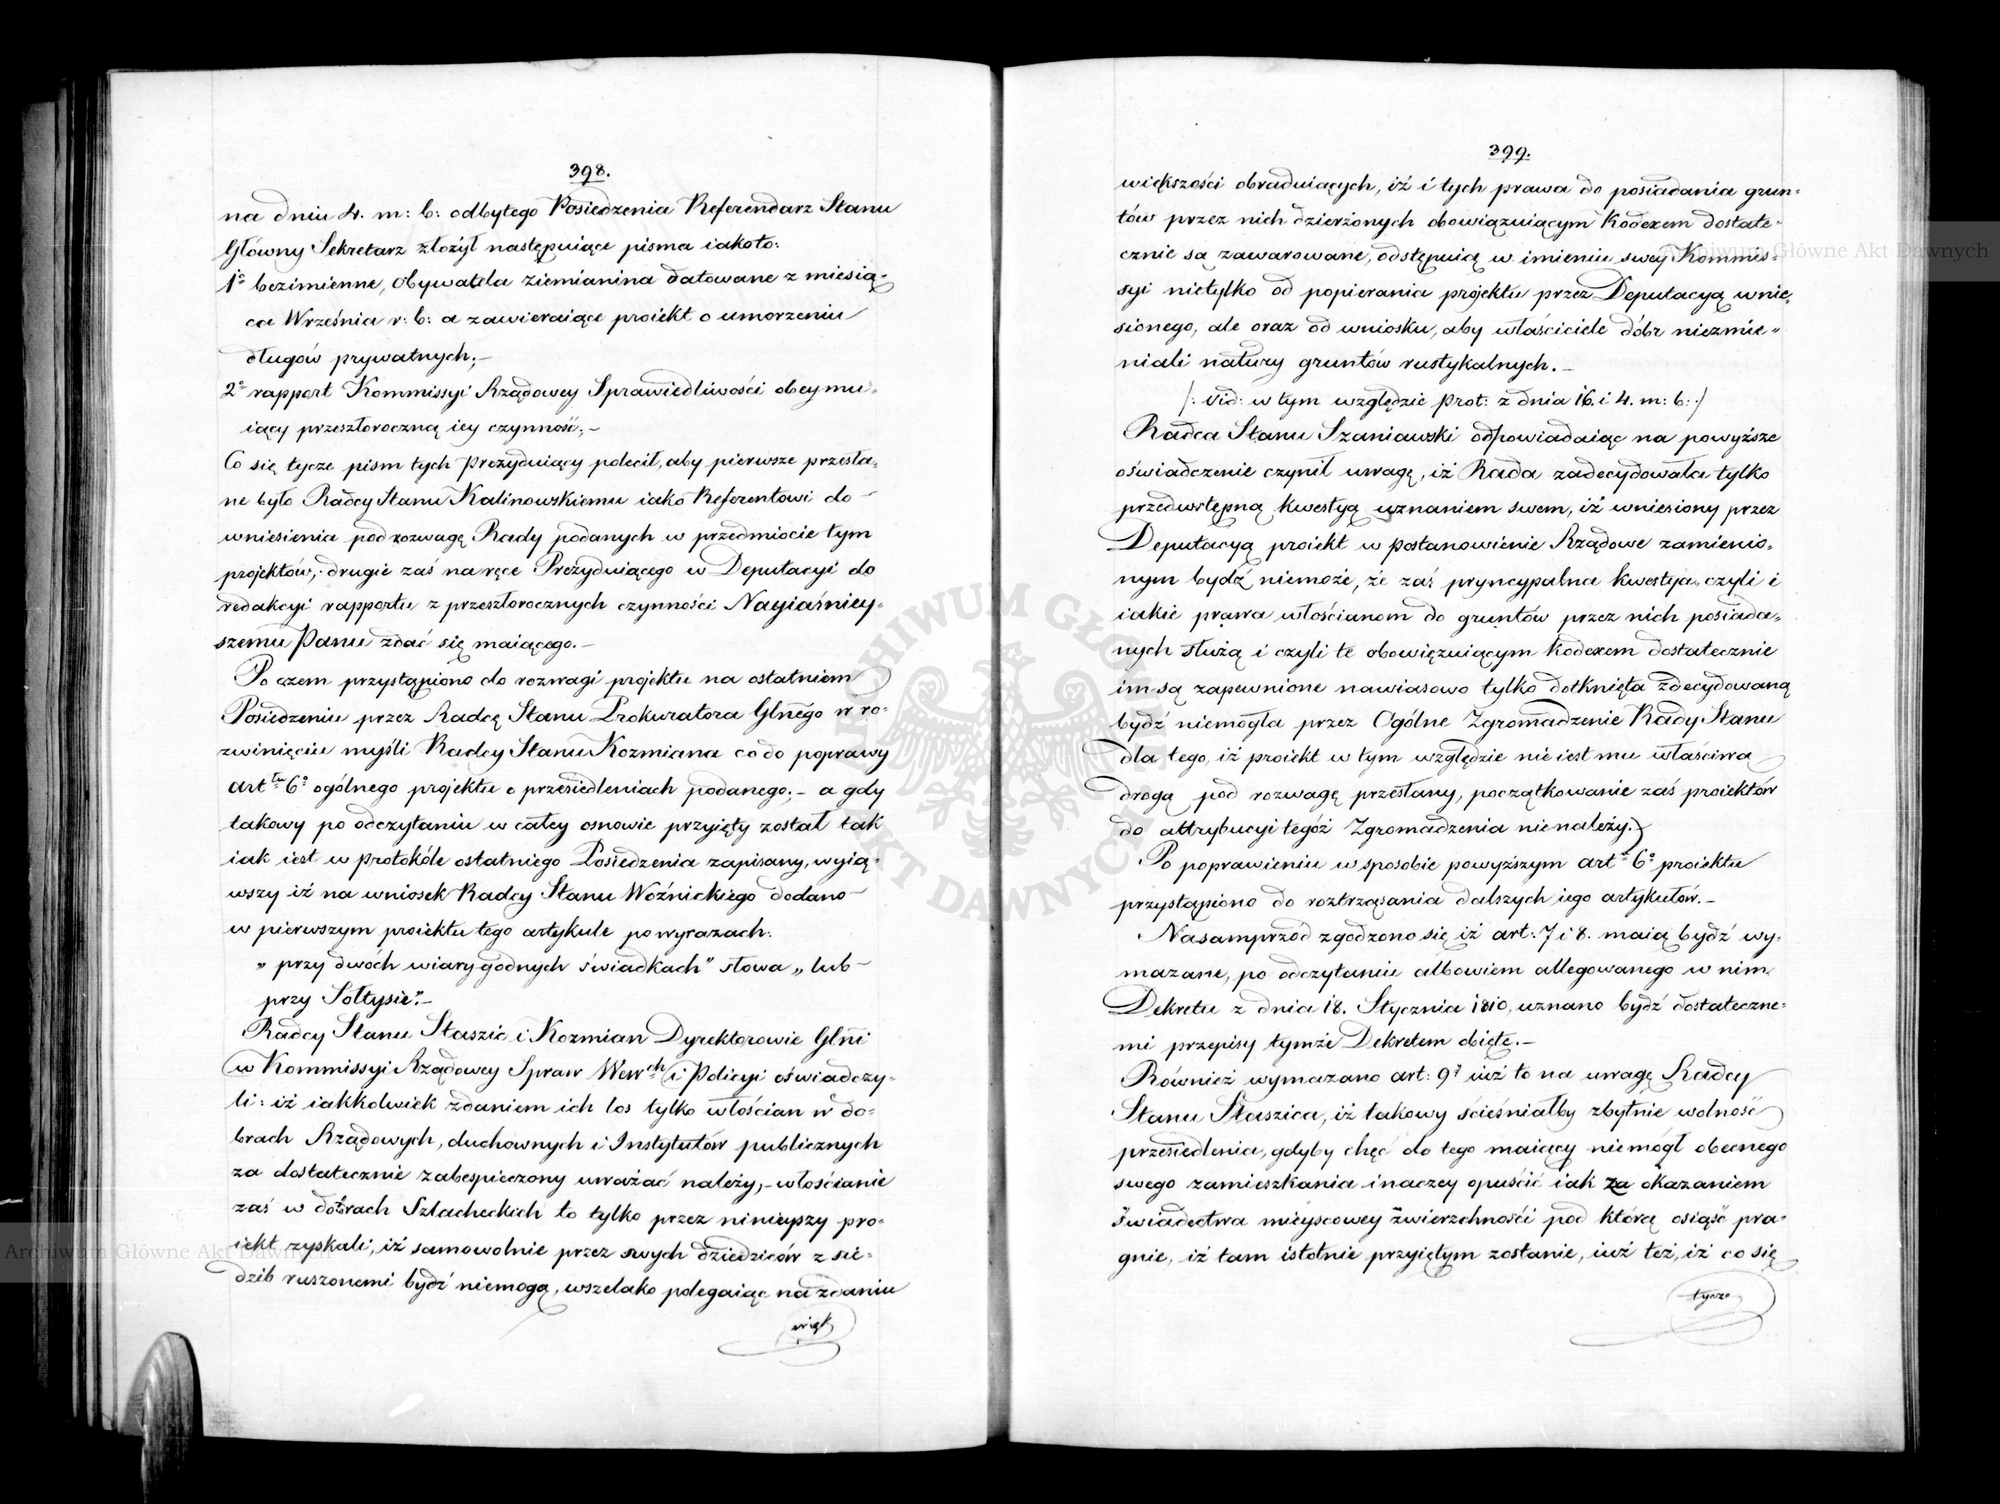 398.
na dniu 4. m: b: odbytego Posiedzenia Referendarz Stanu
Główny Sekretarz złożył następuiące pisma iakoto:
1o bezimienne, Obywatela ziemianina datowane z miesią-
ca Września r: b: a zawieraiące proiekt o umorzeniu
długów prywatnych;-
2o rapport Kommissyi Rządowey Sprawiedliwości obeymu-
iący przeszłoroczną iey czynność;-
Co się tycze pism tych Prezyduiący polecił, aby pierwsze przesła-
ne było Radcy Stanu Kalinowskiemu iako Referentowi do-
wniesienia pod rozwagę Rady podanych w przedmiocie tym
projektów,- drugie zaś na ręce Prezyduiącego w Deputacyi do
redakcyi rapportu z przeszłorocznych czynności Nayiaśniey-
szemu Panu zdać się maiącego.-
Po czem przystąpiono do rozwagi projektu na ostatniem
Posiedzeniu przez Radcę Stanu Prokuratora Glnego w ro-
zwinięciu myśli Radcy Stanu Kozmiana co do poprawy
artłu 6o ogólnego projektu o przesiedleniach podanego;- a gdy
takowy po odczytaniu w całey osnowie przyięty został tak
iak iest w protokóle ostatniego Posiedzenia zapisany, wyią-
wszy iż na wniosek Radcy Stanu Woźnickiego dodano-
w pierwszym proiektu tego artykule po wyrazach:
„ przy dwóch wiarygodnych świadkach" słowa „ lub-
przy Sołtysie".-
Radcy Stanu Staszic i Kozmian Dyrektorowie Glni
w Kommissyi Rządowey Spraw Wewch i Policyi oświadczy-
li: iż iakkolwiek zdaniem ich los tylko włościan w do-
brach Rządowych, duchownych i Instytutów publicznych
za dostatecznie zabespieczony uważać należy,- włościanie
zaś w dobrach Szlacheckich to tylko przez ninieyszy pro-
iekt zyskali, iż samowolnie przez swych dziedziców z sie-
dzib ruszonemi bydź niemogą, wszelako polegaiąc na zdaniu
więk
399.
większości obraduiących, iż i tych prawa do posiadania grun-
tów przez nich dzierżonych obowiązuiącym Kodexem dostate-
cznie są zawarowane, odstępuią w imieniu swey Kommis-
syi nietylko od popierania projektu przez Deputacyą wnie-
sionego, ale oraz od wniosku, aby właściciele dóbr niezmie-
niali natury gruntów rustykalnych.-
/: vid: w tym względzie prot: z dnia 16. i 4. m: b: :/
Radca Stanu Szaniawski odpowiadaiąc na powyższe
oświadczenie czynił uwagę, iż Rada zadecydowała tylko
przedwstępną kwestyą uznaniem swem, iż wniesiony przez
Deputacyą proiekt w postanowienie Rządowe zamienio-
nym bydź niemoże, że zaś pryncypalna kwestya, czyli i
iakie prawa włościanom do gruntów przez nich posiada-
nych służą i czyli te obowięzuiącym Kodexem dostatecznie
im są zapewnione nawiasowo tylko dotknięta zdecydowaną
bydź niemogła przez Ogólne Zgromadzenie Rady Stanu
dla tego, iż proiekt w tym względzie nie iest mu właściwą
drogą pod rozwagę przesłany, początkowanie zaś proiektów
do attrybucyi tegóż Zgromadzenia nienależy.
Po poprawieniu w sposobie powyższym arta 6o proiektu
przystąpiono do roztrząsania dalszych iego artykułów.-
Nasamprzód zgodzono się iż art: 7 i 8. maią bydź wy-
mazane, po odczytaniu albowiem allegowanego w nim
Dekretu z dnia 18. Stycznia 1810, uznano bydź dostateczne-
mi przepisy tymże Dekretem obięte.-
Również wymazano art: 9y iuż to na uwagę Radcy
Stanu Staszica, iż takowy ścieśniałby zbytnie wolność
przesiedlenia, gdyby chęć do tego maiący niemógł obecnego
swego zamieszkania inaczey opuścić iak za okazaniem
świadectwa mieyscowey zwierzchności pod którą osiąść pra-
gnie, iż tam istotnie przyiętym zostanie, iuż też, iż co się
tycze
Archiwum Główne Akt Dawnych
Archiwum Główne Akt Dawnych
ARCHIWUM GŁÓWNE AKT DAWNYCH